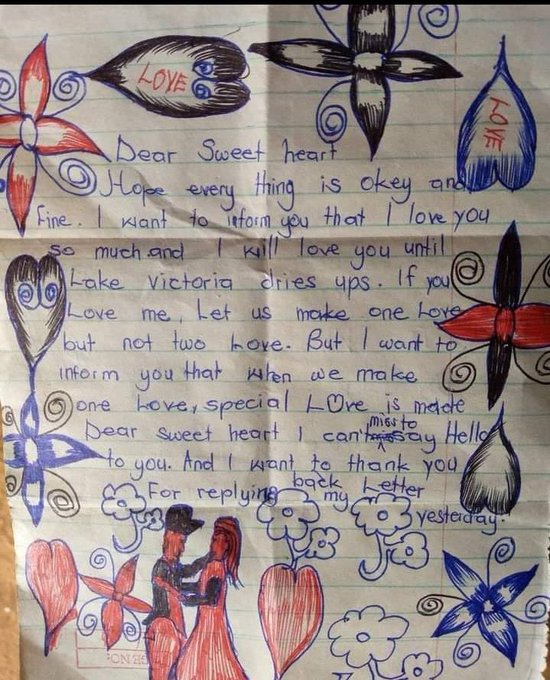 LOVE
LOVE
Dear Sweet heart
Hope every thing is okey and
fine. I want to inform you that I love you
so much.and I will love you until
Lake victoria dries ups. If you
Love me, Let us make one Love
but not two Love. But I want to
inform you that when we make
one Love, special LOve is made
Dear sweet heart I can't miss to say Hello
to you. And I want to thank you
For replying back my Letter
yesteday.